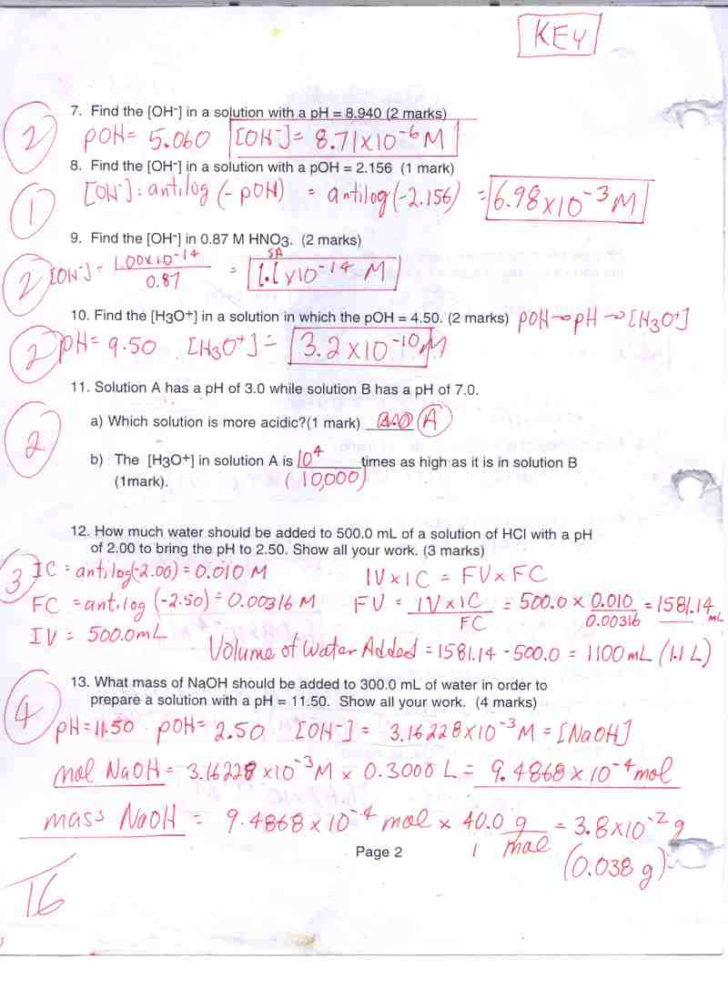 KEY
7. Find the [OH-] in a solution with a pH = 8.940 (2 marks)
2 pOH = 5.060 [OH-] = 8.71x10-6 M
8. Find the [OH-] in a solution with a pOH = 2.156 (1 mark)
1 [OH-] = antilog (- pOH) = antilog (-2.156) = 6.98x10-3 M
9. Find the [OH-] in 0.87 M HNO3. (2 marks)
SA
2 [OH-] = 1.00x10-14 / 0.87 = 1.1x10-14 M
10. Find the [H3O+] in a solution in which the pOH = 4.50. (2 marks) pOH → pH → [H3O+]
2 pH = 9.50 [H3O+] = 3.2x10-10 M
11. Solution A has a pH of 3.0 while solution B has a pH of 7.0.
2
a) Which solution is more acidic?(1 mark) A
b) The [H3O+] in solution A is 10^4 times as high as it is in solution B
(1mark). (10,000)
12. How much water should be added to 500.0 mL of a solution of HCl with a pH
of 2.00 to bring the pH to 2.50. Show all your work. (3 marks)
3 IC = antilog(-2.00) = 0.010 M IV x IC = FV x FC
FC = antilog (-2.50) = 0.00316 M FV = IV x IC / FC = 500.0 x 0.010 / 0.00316 = 1581.14 mL
IV = 500.0mL
Volume of Water Added = 1581.14 - 500.0 = 1100 mL (1.1 L)
13. What mass of NaOH should be added to 300.0 mL of water in order to
prepare a solution with a pH = 11.50. Show all your work. (4 marks)
4 pH = 11.50 pOH = 2.50 [OH-] = 3.16228x10-3 M = [NaOH]
mol NaOH = 3.16228 x10-3 M x 0.3000 L = 9.4868 x 10-4 mol
mass NaOH = 9.4868 x 10-4 mol x 40.0 g / 1 mol = 3.8x10-2 g
Page 2
(0.038 g)
16